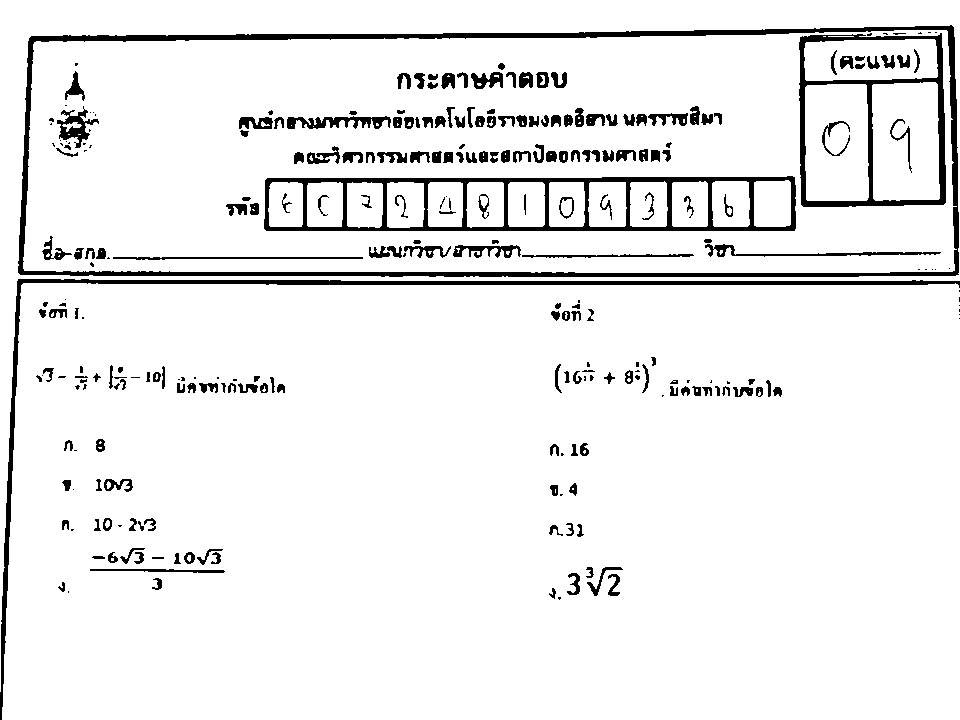 (คะแนน)
0 9
กระดาษคำตอบ
ศูนย์กลางมหาวิทยาลัยเทคโนโลยีราชมงคลอีสาน นครราชสีมา
คณะวิศวกรรมศาสตร์และสถาปัตยกรรมศาสตร์
รหัส 7 2 4 8 1 0 9 3 3 6
ชื่อ-สกุล. แผนกวิชา/สาขาวิชา วิชา
ข้อที่ 1.
√3 - + - 10| มีค่าเท่ากับข้อใด
ก. 8
ข. 10√3
ค. 10 - 2√3
ง. (-6√3 - 10√3)/3
ข้อที่ 2
(16 + 8)³ . มีค่าเท่ากับข้อใด
ก. 16
ข. 4
ค.31
ง. 3∛2